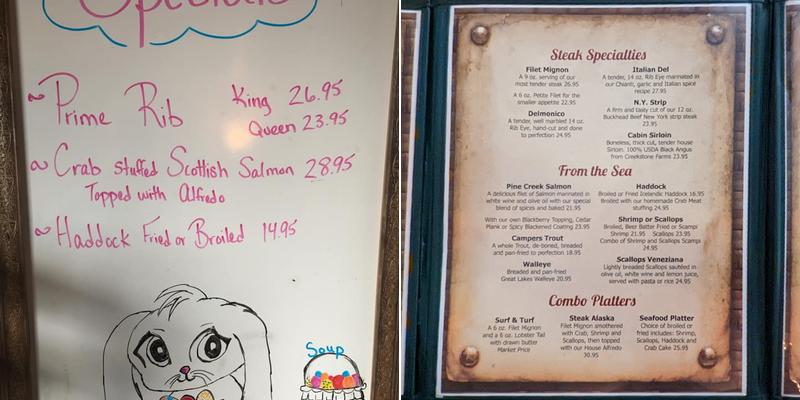 Specials
~ Prime Rib King 26.95
Queen 23.95
~ Crab stuffed Scottish Salmon 28.95
Topped with Alfredo
~ Haddock Fried or Broiled 14.95
Soup
Steak Specialties
Filet Mignon
A 9 oz. serving of our
most tender steak 26.95
A 6 oz. Petite Filet for the
smaller appetite 22.95
Delmonico
A tender, well marbled 14 oz.
Rib Eye, hand-cut and done
to perfection 24.95
Italian Del
A tender, 14 oz. Rib Eye marinated in
our Chianti, garlic and Italian spice
recipe 27.95
N.Y. Strip
A firm and tasty cut of our 12 oz.
Buckhead Beef New York strip steak
23.95
Cabin Sirloin
Boneless, thick cut, tender house
Sirloin. 100% USDA Black Angus
from Creekstone Farms 23.95
From the Sea
Pine Creek Salmon
A delicious filet of Salmon marinated in
white wine and olive oil with our special
blend of spices and baked 21.95
With our own Blackberry Topping, Cedar
Plank or Spicy Blackened Coating 23.95
Campers Trout
A whole Trout, de-boned, breaded
and pan-fried to perfection 18.95
Walleye
Breaded and pan-fried
Great Lakes Walleye 20.95
Haddock
Broiled or Fried Icelandic Haddock 16.95
Broiled with our homemade Crab Meat
stuffing 24.95
Shrimp or Scallops
Broiled, Beer Batter Fried or Scampi
Shrimp 21.95 Scallops 23.95
Combo of Shrimp and Scallops Scampi
24.95
Scallops Veneziana
Lightly breaded Scallops sautéed in
olive oil, white wine and lemon juice,
served with pasta or rice 24.95
Combo Platters
Surf & Turf
A 6 oz. Filet Mignon
and a 6 oz. Lobster Tail
with drawn butter
Market Price
Steak Alaska
Filet Mignon smothered
with Crab, Shrimp and
Scallops, then topped
with our House Alfredo
30.95
Seafood Platter
Choice of broiled or
fried includes: Shrimp,
Scallops, Haddock and
Crab Cake 25.95